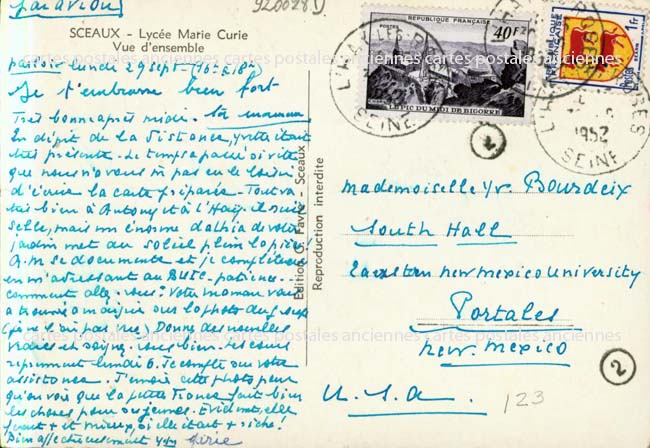 par avion
920028
SCEAUX - Lycée Marie Curie
Vue d'ensemble
lundi 29 sept
Je t'embrasse bien fort
Très bonne après midi. ta maman
En dépit de la distance, Yvette était
très présente. Le temps a passé si vite
que nous n'avons m pas eu le loisir
d'écrire la carte préparée. Tout va
très bien à Antony et à l'Haÿ, il
mais un énorme dahlia de votre
jardin met du soleil plein la pièce
se documente et je complèterai
en m'adressant au patience...
comment allez-vous? Votre maman vous
a trouvée maigrie sur la photo du
(père l'air pas ne) Donnez des nouvelles
vraies et soignez-vous bien. Les cours
reprennent lundi 6. Je compte sur votre
assistance. J'envoie cette photo pour
qu'on voie que la petite France fait bien
les choses pour ses jeunes. Evidemt, elle
ferait + et mieux, si elle était + riche!
Bien affectueusement
Edition G. Favre - Sceaux
Reproduction interdite
POSTES
REPUBLIQUE FRANÇAISE
40F
LE PIC DU MIDI DE BIGORRE
1Fr
L'HAY-LES-ROSES
SEINE
1952
SEINE
1
mademoiselle Yv. Bourdeix
South Hall
Eastern new mexico University
Portales
new. mexico
U.S.A.
123
2
cartes postales anciennes cartes postales anciennes cartes postales anciennes